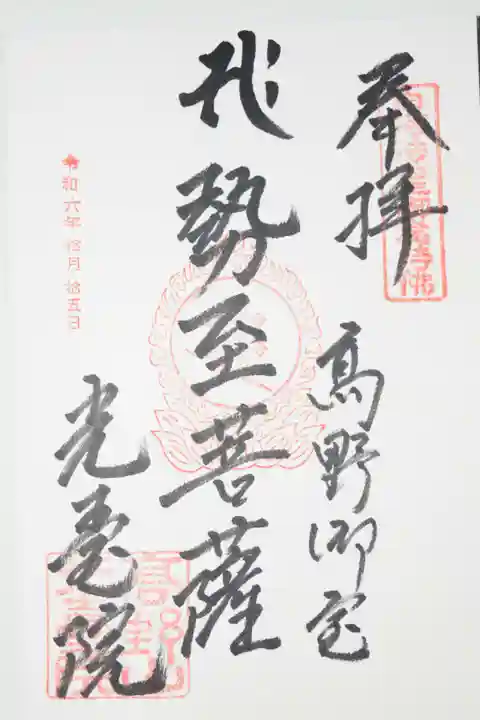 奉拝
高野御室
勢至菩薩
光臺院
令和六年拾月拾五日